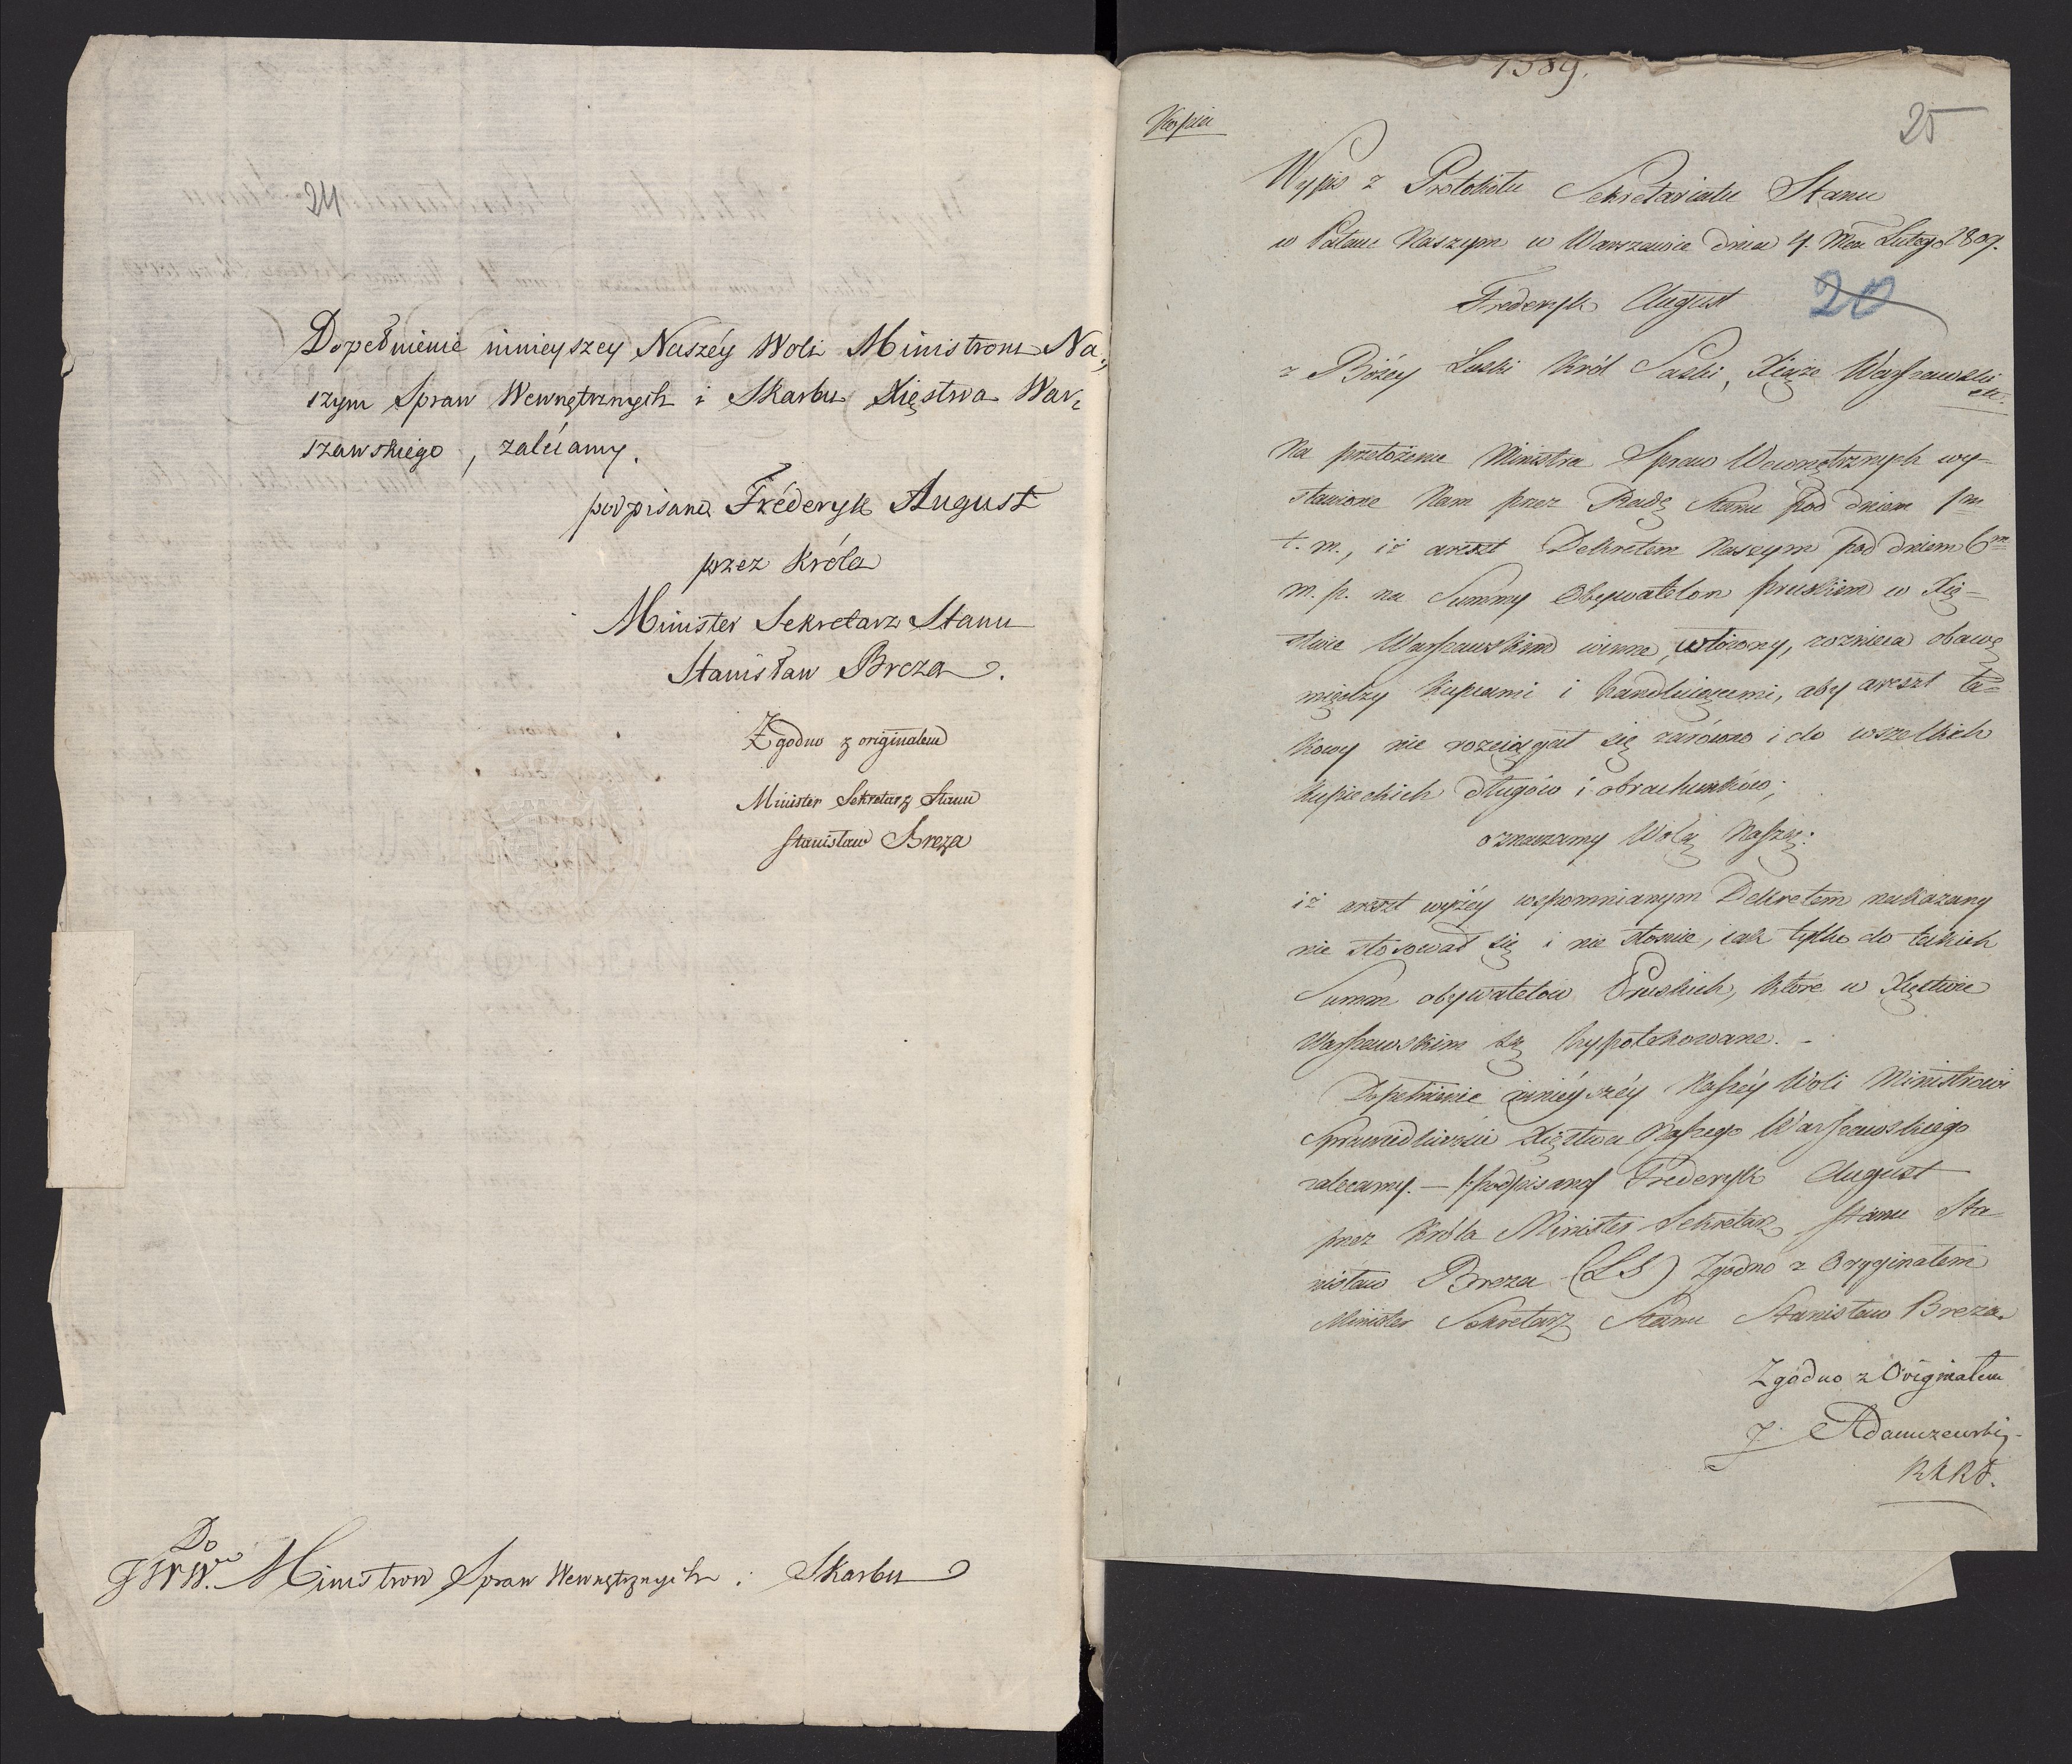 24
Dopełnienie ninieyszey Naszéy Woli Ministrom Na-
szym Spraw Wewnętrznych i Skarbu Xięstwa War-
szawskiego, zalécamy.
podpisano Fréderyk August
przez Króla
Minister Sekretarz Stanu
Stanisław Breza.
Zgodno z originałem
Minister Sekretarz Stanu
Stanisław Breza
Do
JWW. Ministrow Spraw Wewnętrznych i Skarbu
1389.
Kopia
25
Wypis z Protokółu Sekretariatu Stanu
w Pałacu Naszym w Warszawie dnia 4. Mca Lutego 1809.
Frederyk August
20
z Bożéy Łaski Król Saski, Xiąże Warszawski
etc.
Na przełożenie Ministra Spraw Wewnętrznych wy-
stawione Nam przez Radę Stanu pod dniem 1m
t. m., iż areszt Dekretem Naszym pod dniem 6m
m. p. na Summy Obywatelom pruskim w Xię-
stwie Warszawskim winne, włożony, roznieca obawę
między kupcami i handluiącemi, aby areszt ta-
kowy nie rozciągał się zarówno i do wszelkich
kupieckich długów i obrachunków;
oznaczamy Wolą Naszą:
iż areszt wyżéy wspomnianym Dekretem nakazany
nie stosował się i nie stosuie, iak tylko do takich
Summ obywatelów Pruskich, które w Xięstwie
Warszawskim są hypotekowane. -
Dopełnienie ninieyszéy Naszéy Woli Ministrowi
Sprawiedliwości Xięstwa Naszego Warszawskiego
zalecamy. — /:podpisano/ Frederyk August
przez Króla Minister Sekretarz Stanu Sta-
nisław Breza (LS) Zgodno z Orygjnałem
Minister Sekretarz Stanu Stanisław Breza.
Zgodno z Originałem
J. Adamczewski